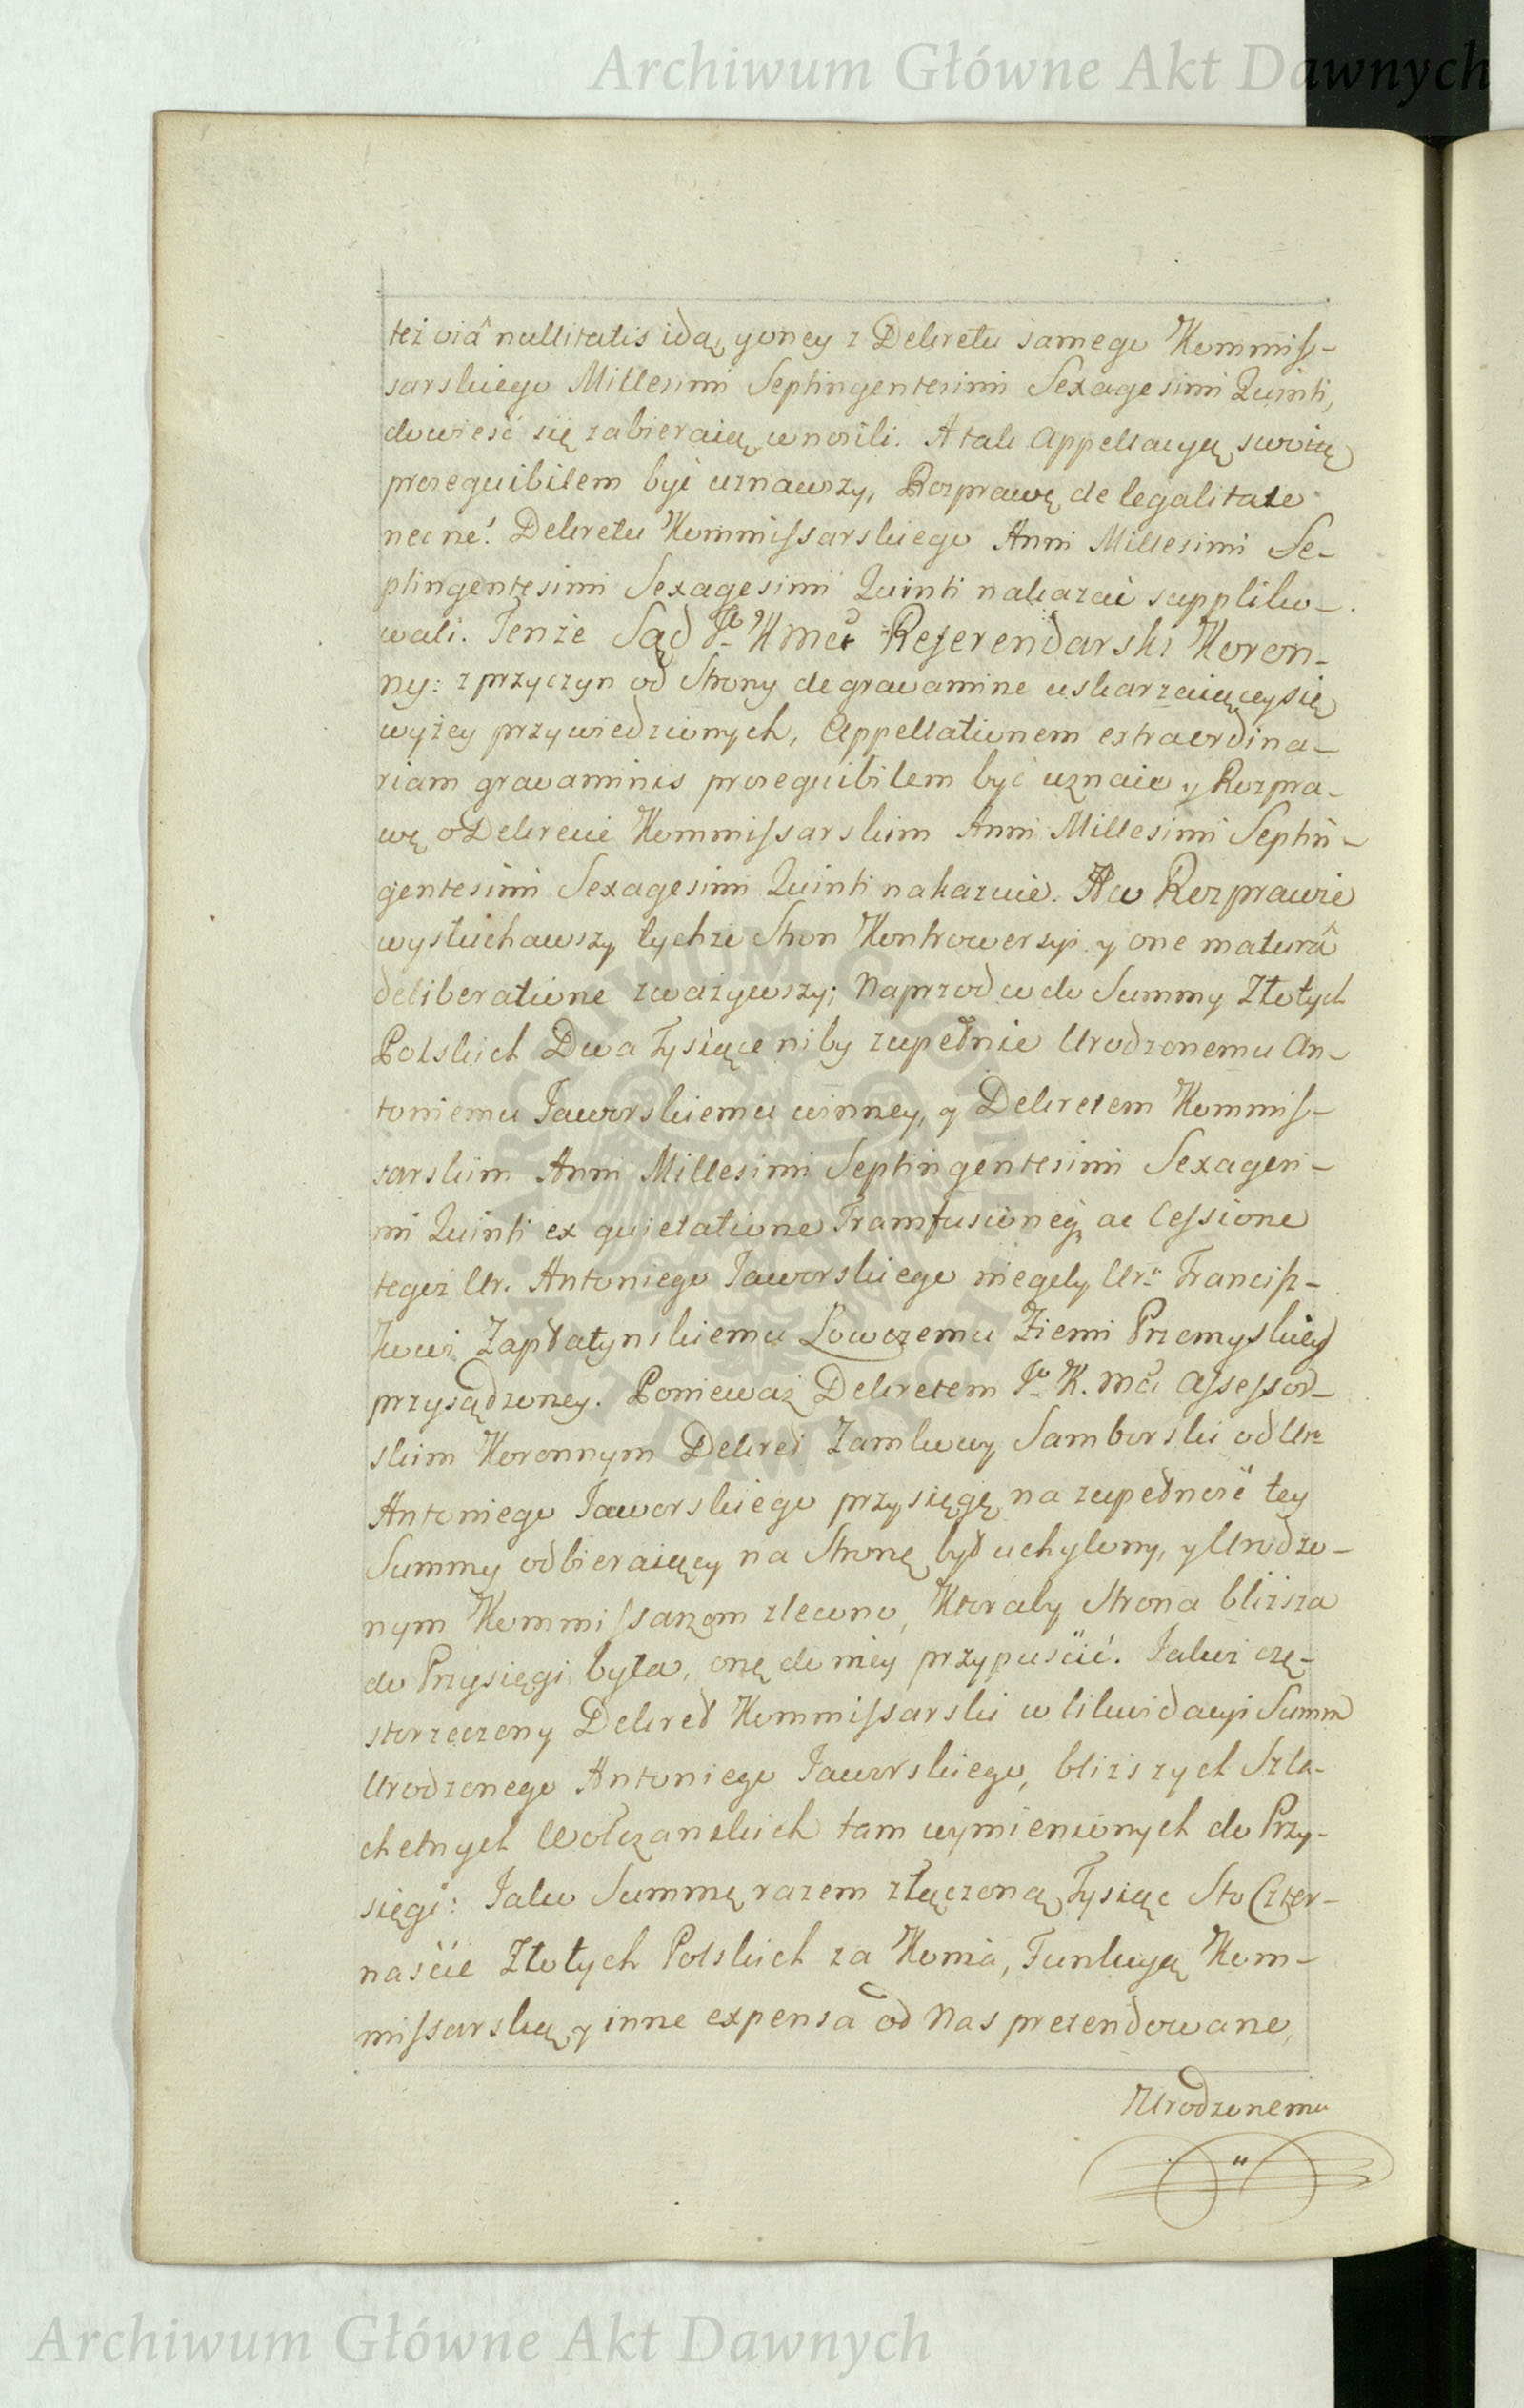 Archiwum Główne Akt Dawnych
też viâ nullitatis idą, yoney z Dekretu samego Kommiss-
sarskiego Millesimi Septingentesimi Sexagesimi Quinti,
dowieść się zabieraią, wnosili. A tak Appellacyą swoią
prosequibilem być uznawszy, Rozprawę de legalitate
necne? Dekretu Kommissarskiego Anni Millesimi Se-
ptingentesimi Sexagesimi Quinti nakazać suppliko-
wali. Tenże Sąd Jo K Mci Referendarski Koron-
ny: z przyczyn od Strony de gravamine uskarzaiącey się
wyżey przywiedzionych, Appellationem extraordina-
riam gravaminis prosequibilem być uznaie y Rozpra-
wę o Dekrecie Kommissarskim Anni Millesimi Septin-
gentesimi Sexagesimi Quinti nakazuie. A w Rozprawie
wysłuchawszy tychże Stron Kontrowersyi y one maturâ
deliberatione zważywszy; Naprzod co do Summy Złotych
Polskich Dwa Tysiące niby zupełnie Urodzonemu An-
toniemu Jaworskiemu winney, y Dekretem Kommiss-
sarskim Anni Millesimi Septingentesimi Sexagesi-
mi Quinti ex quietatione Transfusioneq, ac Cessione
tegoż Ur. Antoniego Jaworskiego niegdy Uro Francisz-
kowi Zapłatynskiemu Łowczemu Ziemi Przemyskiey
przysądzoney. Ponieważ Dekretem Jo K. Mci Assessor-
skim Koronnym Dekret Zamkowy Samborski od Uro
Antoniego Jaworskiego przysięgę na zupełność tey
Summy odbieraiący na Stronę był uchylony, y Urodzo-
nym Kommissarzom zlecono, Ktoraby Strona bliższa
do Przysięgi była, onę do niey przypuścić. Jakoż czę-
storzeczony Dekret Kommissarski w likwidacyi Summ
Urodzonego Antoniego Jaworskiego, bliższych Szla-
chetnych Wołczanskich tam wymienionych do Przy-
sięgi: Jako Summę razem złączoną Tysiąc Sto Czter-
naście Złotych Polskich za Konia, Funkcyą Kom-
missarską y inne expensa od Nas pretendowane,
Urodzonemu
Archiwum Główne Akt Dawnych